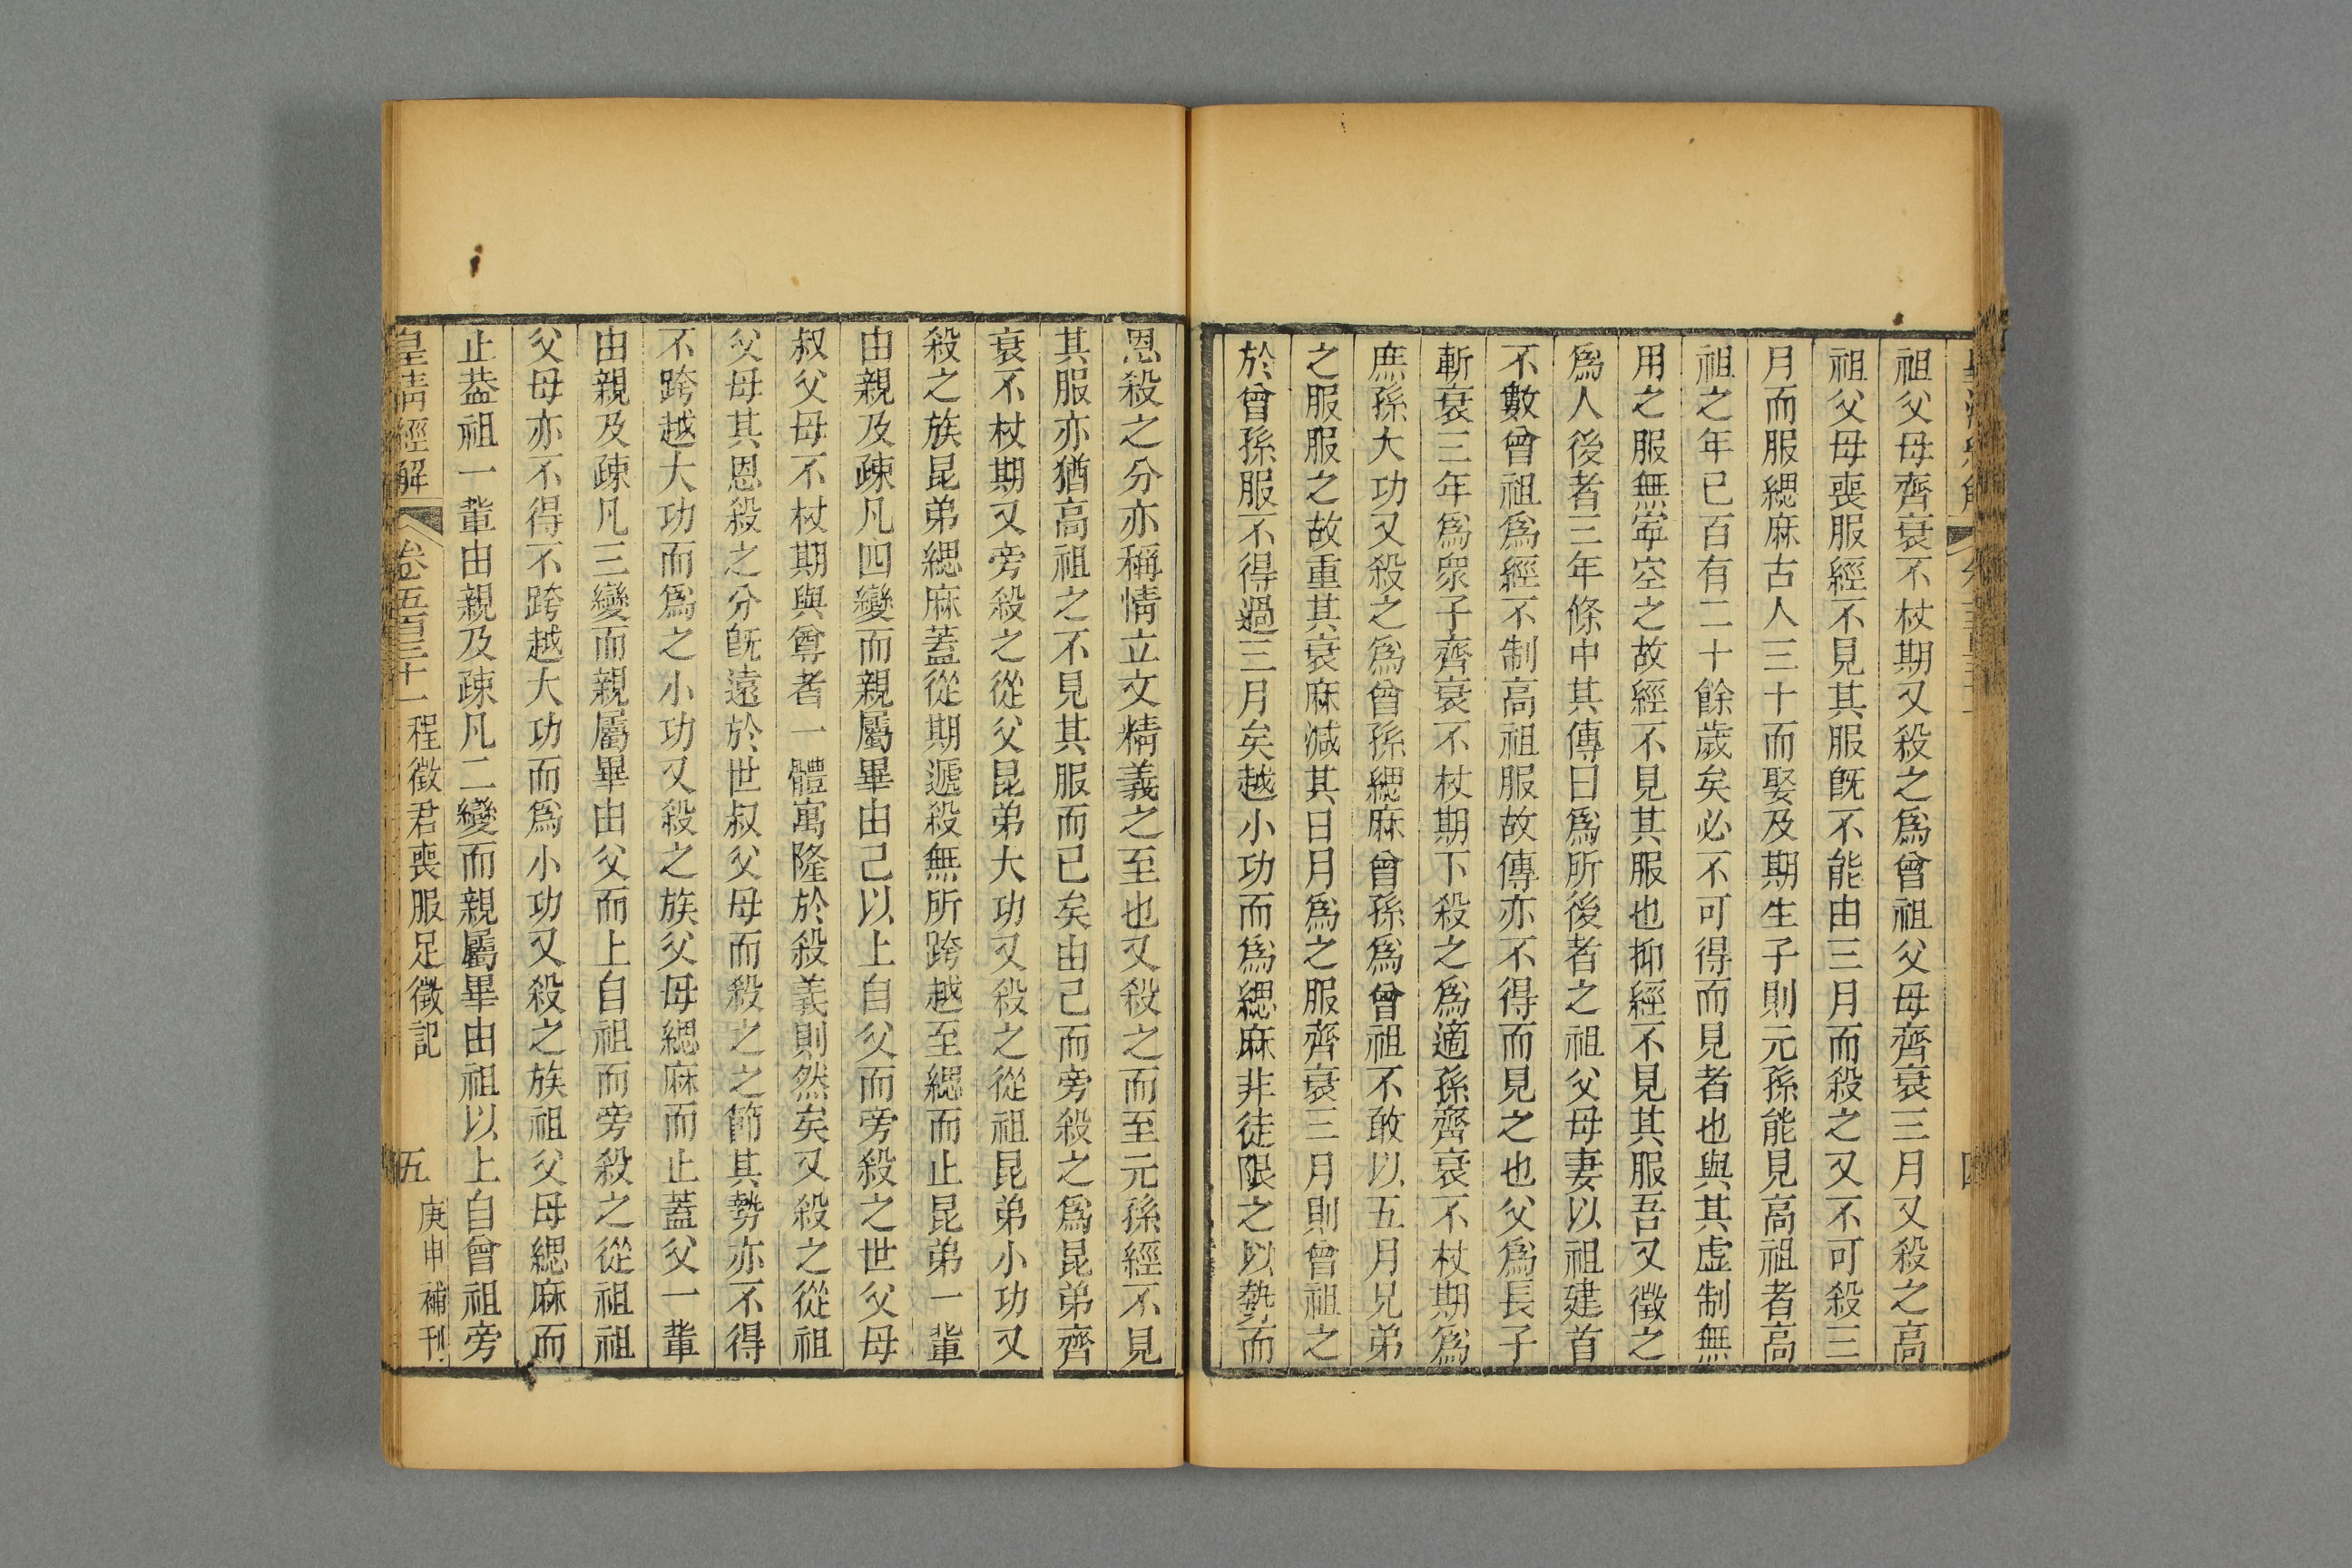 祖父母齊衰不杖期又殺之爲曾祖父母齊衰三月又殺之高
祖父母喪服經不見其服旣不能由三月而殺之又不可殺三
月而服緦麻古人三十而娶及期生子則元孫能見高祖者高
祖之年已百有二十餘歲矣必不可得而見者也與其虛制無
用之服無寧空之故經不見其服也抑經不見其服吾又徵之
爲人後者三年條中其傳曰爲所後者之祖父母妻以祖建首
不數曾祖爲經不制高祖服故傳亦不得而見之也父爲長子
斬衰三年爲眾子齊衰不杖期下殺之爲適孫齊衰不杖期爲
庶孫大功又殺之爲曾孫緦麻曾孫爲曾祖不敢以五月兄弟
之服服之故重其衰麻減其日月爲之服齊衰三月則曾祖之
於曾孫服不得過三月矣越小功而爲緦麻非徒限之以勢而
恩殺之分亦稱情立文精義之至也又殺之而至元孫經不見
其服亦猶高祖之不見其服而已矣由己而旁殺之爲昆弟齊
衰不杖期又旁殺之從父昆弟大功又殺之從祖昆弟小功又
殺之族昆弟緦麻蓋從期遞殺無所跨越至緦而止昆弟一輩
由親及疎凡四變而親屬畢由己以上自父而旁殺之世父母
叔父母不杖期與尊者一體寓隆於殺義則然矣又殺之從祖
父母其恩殺之分旣遠於世叔父母而殺之之節其勢亦不得
不跨越大功而爲之小功又殺之族父母緦麻而止蓋父一輩
由親及疎凡三變而親屬畢由父而上自祖而旁殺之從祖祖
父母亦不得不跨越大功而爲小功又殺之族祖父母緦麻而
止葢祖一輩由親及疎凡二變而親屬畢由祖以上自曾祖旁
皇清經解 卷五百三十一 程徵君喪服足徵記 五 庚申補刊